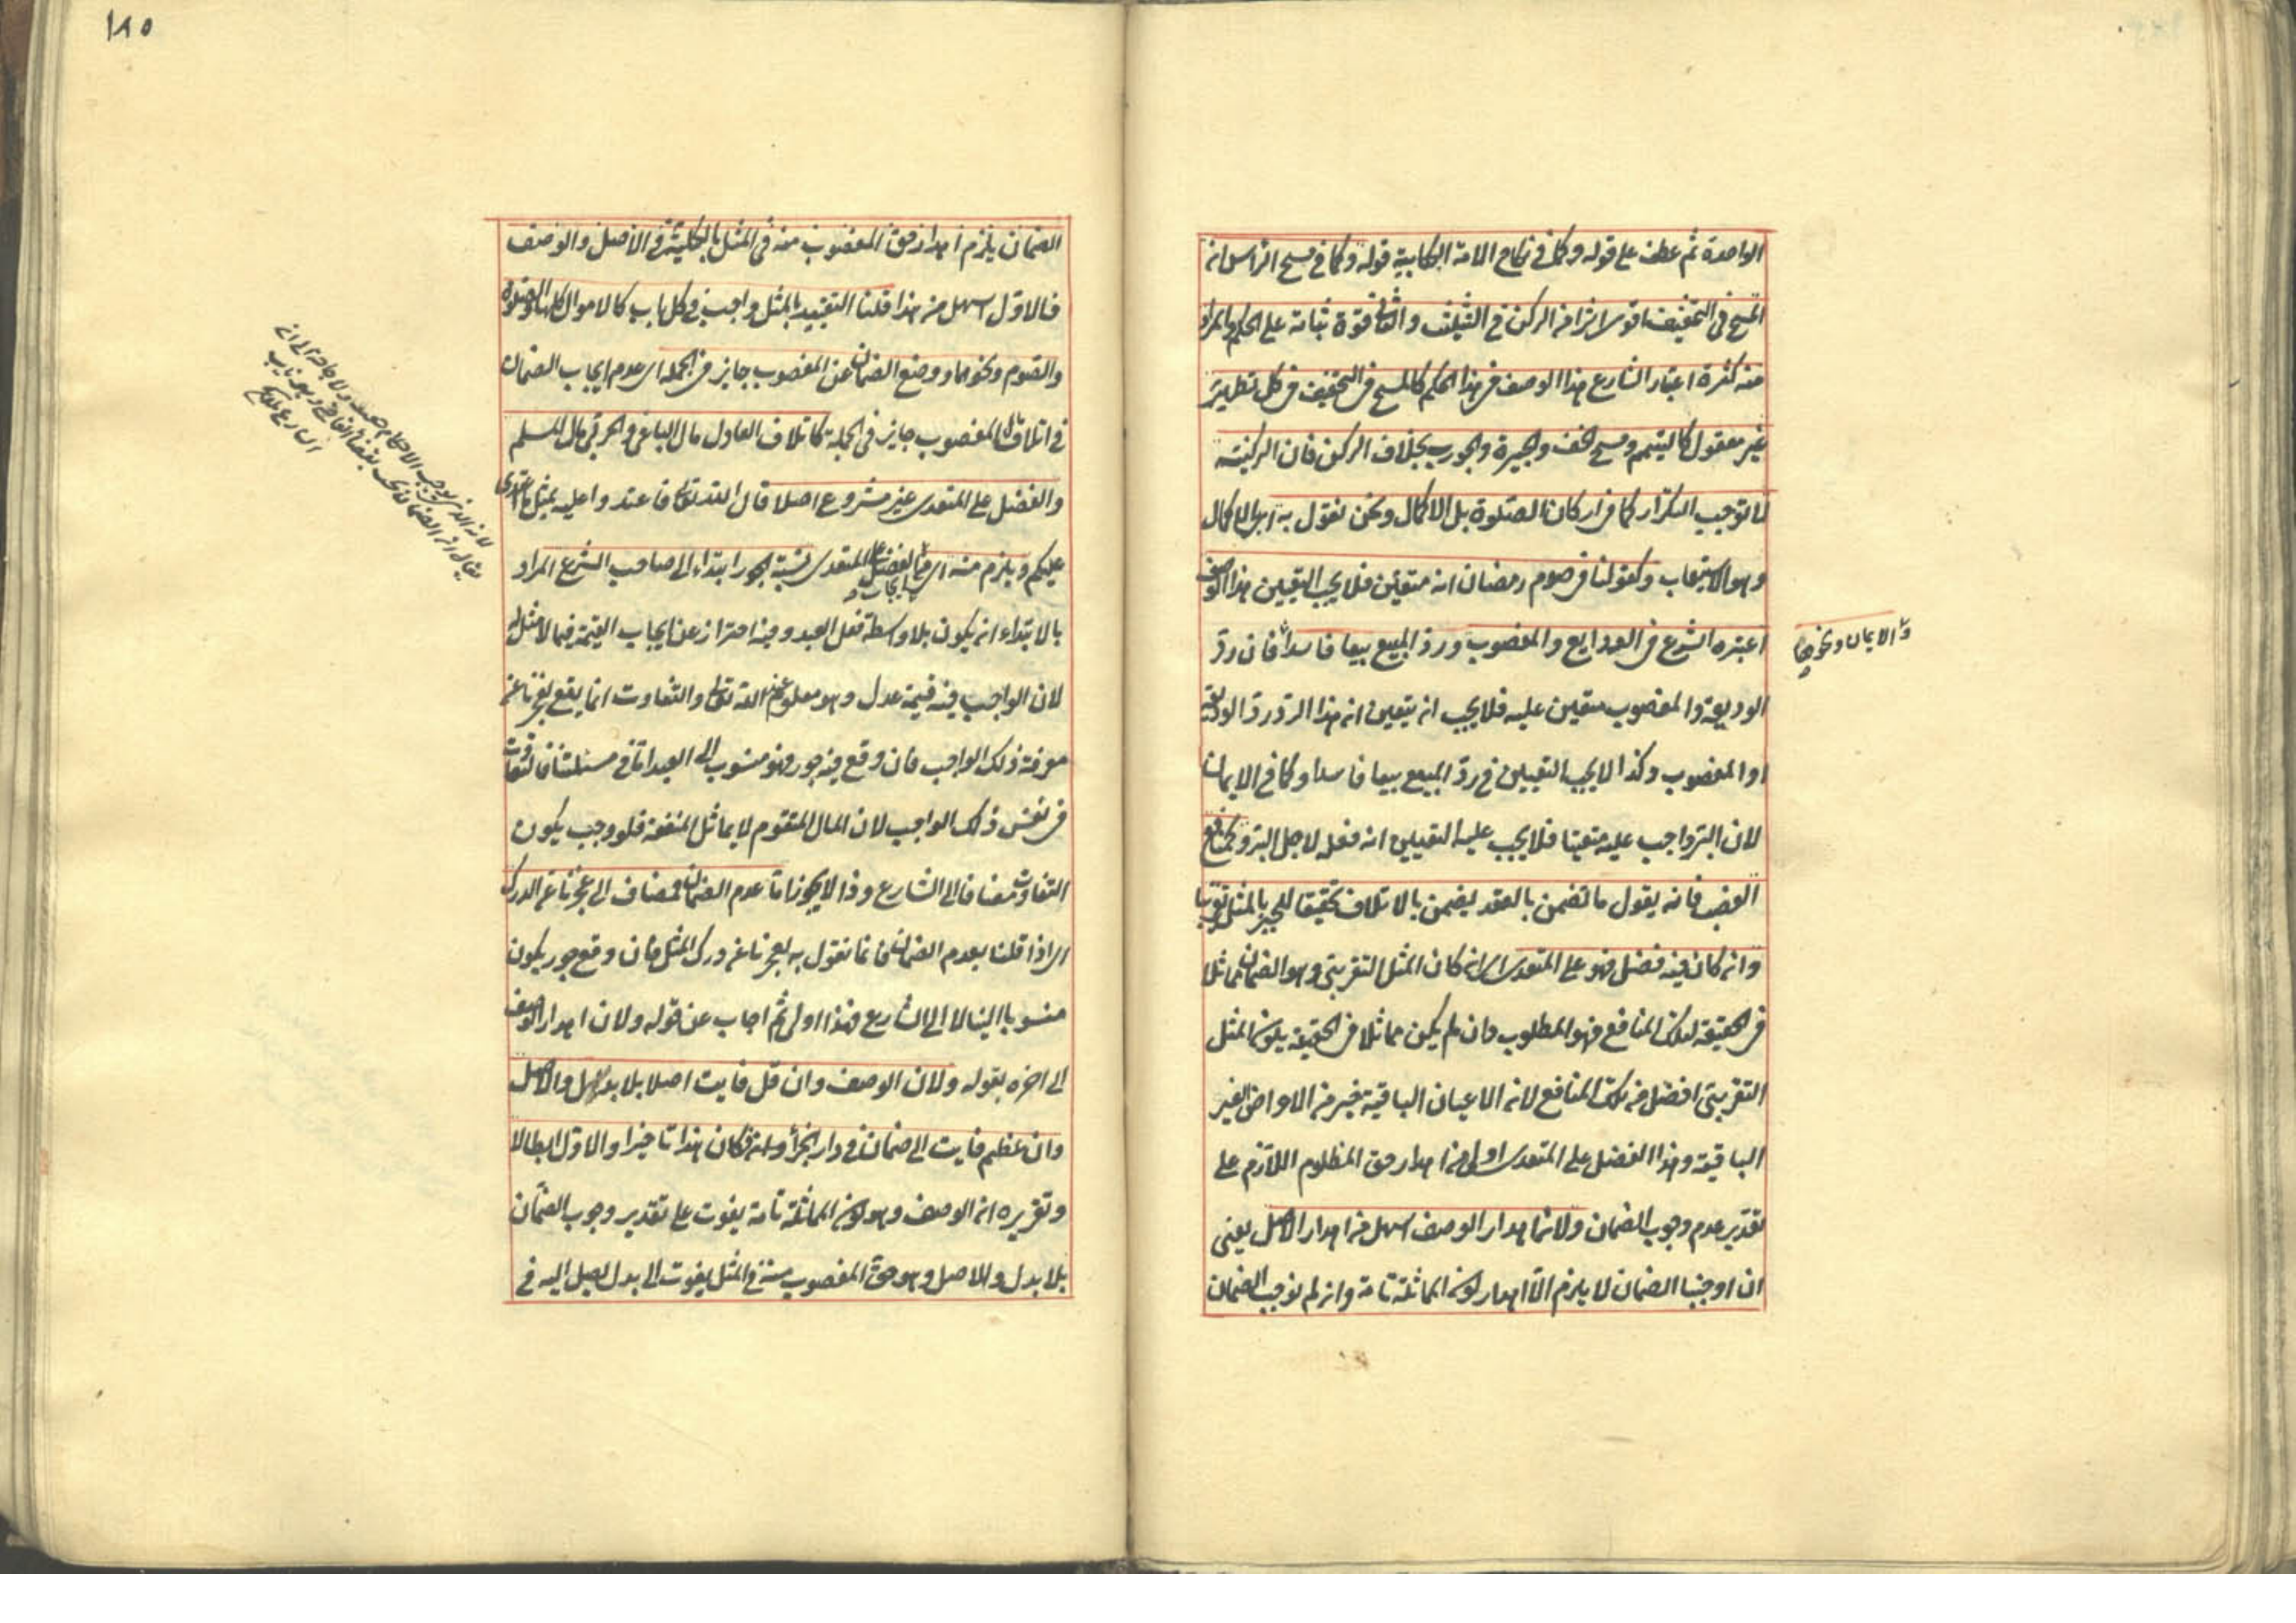 الواحدة ثم عطف على قوله وكما في نكاح الامة الكتابية قوله وكما في مسح الراس ان
المسح في التخفيف اقوى اثرا من الركن في التثليث والثانى قوة ثباته على الحكم والمراد
منه كثرة اعتبار الشارع هذا الوصف في هذا الحكم كالمسح في التخفيف في كل تطهير
غير معقول كالتيمم ومسح الخف والجبيرة والجورب بخلاف الركن فان الركنية
لا توجب التكرار كما في اركان الصلوة بل الاكمال ونحن نقول به اى بالاكمال
وهو الاستيعاب وكقولنا في صوم رمضان انه متعين فلا يجب التعيين هذا الوصف
اعتبره الشرع في الودايع والمغصوب ورد المبيع بيعا فاسدا فان رد
والايمان ونحوها
الوديعة والمغصوب متعين عليه فلا يجب ان يتعين ان هذا الرد رد الوديعة
او المغصوب وكذا لا يجب التعيين في رد المبيع بيعا فاسدا وكما في الايمان
لان البر واجب عليه متعينا فلا يجب عليه التعيين انه فعله لاجل البر وكمنافع
الغصب فانه يقول ما تضمن بالعقد يضمن بالاتلاف تحقيقا للجبر بالمثل تقريبا
وان كان فيه فضل فهو على المتعدى اى ان كان المثل التقريبى وهو الضمان مماثلا
في الحقيقة لتلك المنافع فهو المطلوب وان لم يكن مماثلا في الحقيقة يكون المثل
التقريبى افضل من تلك المنافع لان الاعيان الباقية خير من الاعراض الغير
الباقية وهذا الفضل على المتعدى اولى من اهدار حق المظلوم اللازم على
تقدير عدم وجوب الضمان ولان اهدار الوصف اسهل من اهدار الاصل يعنى
ان اوجبنا الضمان لا يلزم الا اهدار كون المماثلة تامة وان لم نوجب الضمان
١٨٥
الضمان يلزم اهدار حق المغصوب منه في المثل بالكلية في الاصل والوصف
فالاول اسهل من هذا قلنا التقييد بالمثل واجب في كل باب كالاموال كلها والصلوة
والصوم ونحوهما ووضع الضمان عن المغصوب جايز في الجملة اى عدم ايجاب الضمان
في اتلاف المغصوب جايز في الجملة كاتلاف العادل مال الباغى والحربى مال المسلم
والفضل على المتعدى غير مشروع اصلا قال الله تعالى فاعتدوا عليه بمثل ما اعتدى
عليكم ويلزم منه اى من الفضل على المتعدى نسبة الجور ابتداء الى صاحب الشرع المراد
بالابتداء ان يكون بلا واسطة فعل العبد وفيه احتراز عن ايجاب القيمة فيما لا مثل له
لان الواجب فيه قيمة عدل وهو معلوم عند الله تعالى والتفاوت انما يقع لعجزنا عن
معرفة ذلك الواجب فان وقع فيه جور فهو منسوب الى العبد اما في مسئلتنا فالتفاوت
في نفس ذلك الواجب لان المال المتقوم لا يماثل المنفعة فلو وجب يكون
التفاوت مضافا الى الشارع وذا لا يجوز اما عدم الضمان فمضاف الى عجزنا عن الدرك
اى اذا قلنا بعدم الضمان فانما نقول به لعجزنا عن درك المثل فان وقع جور يكون
منسوبا الينا لا الى الشارع فهذا اولى ثم اجاب عن قوله ولان اهدار الوصف
الى اخره بقوله ولان الوصف وان قل فايت اصلا بلا بدل والاصل
وان عظم فايت الى ضمان في دار الجزأ فكان هذا تاخيرا والاول ابطالا
وتقريره ان الوصف وهو كون المماثلة تامة يفوت على تقدير وجوب الضمان
بلا بدل والاصل وهو حق المغصوب منه في المثل يفوت الى بدل يصل اليه في